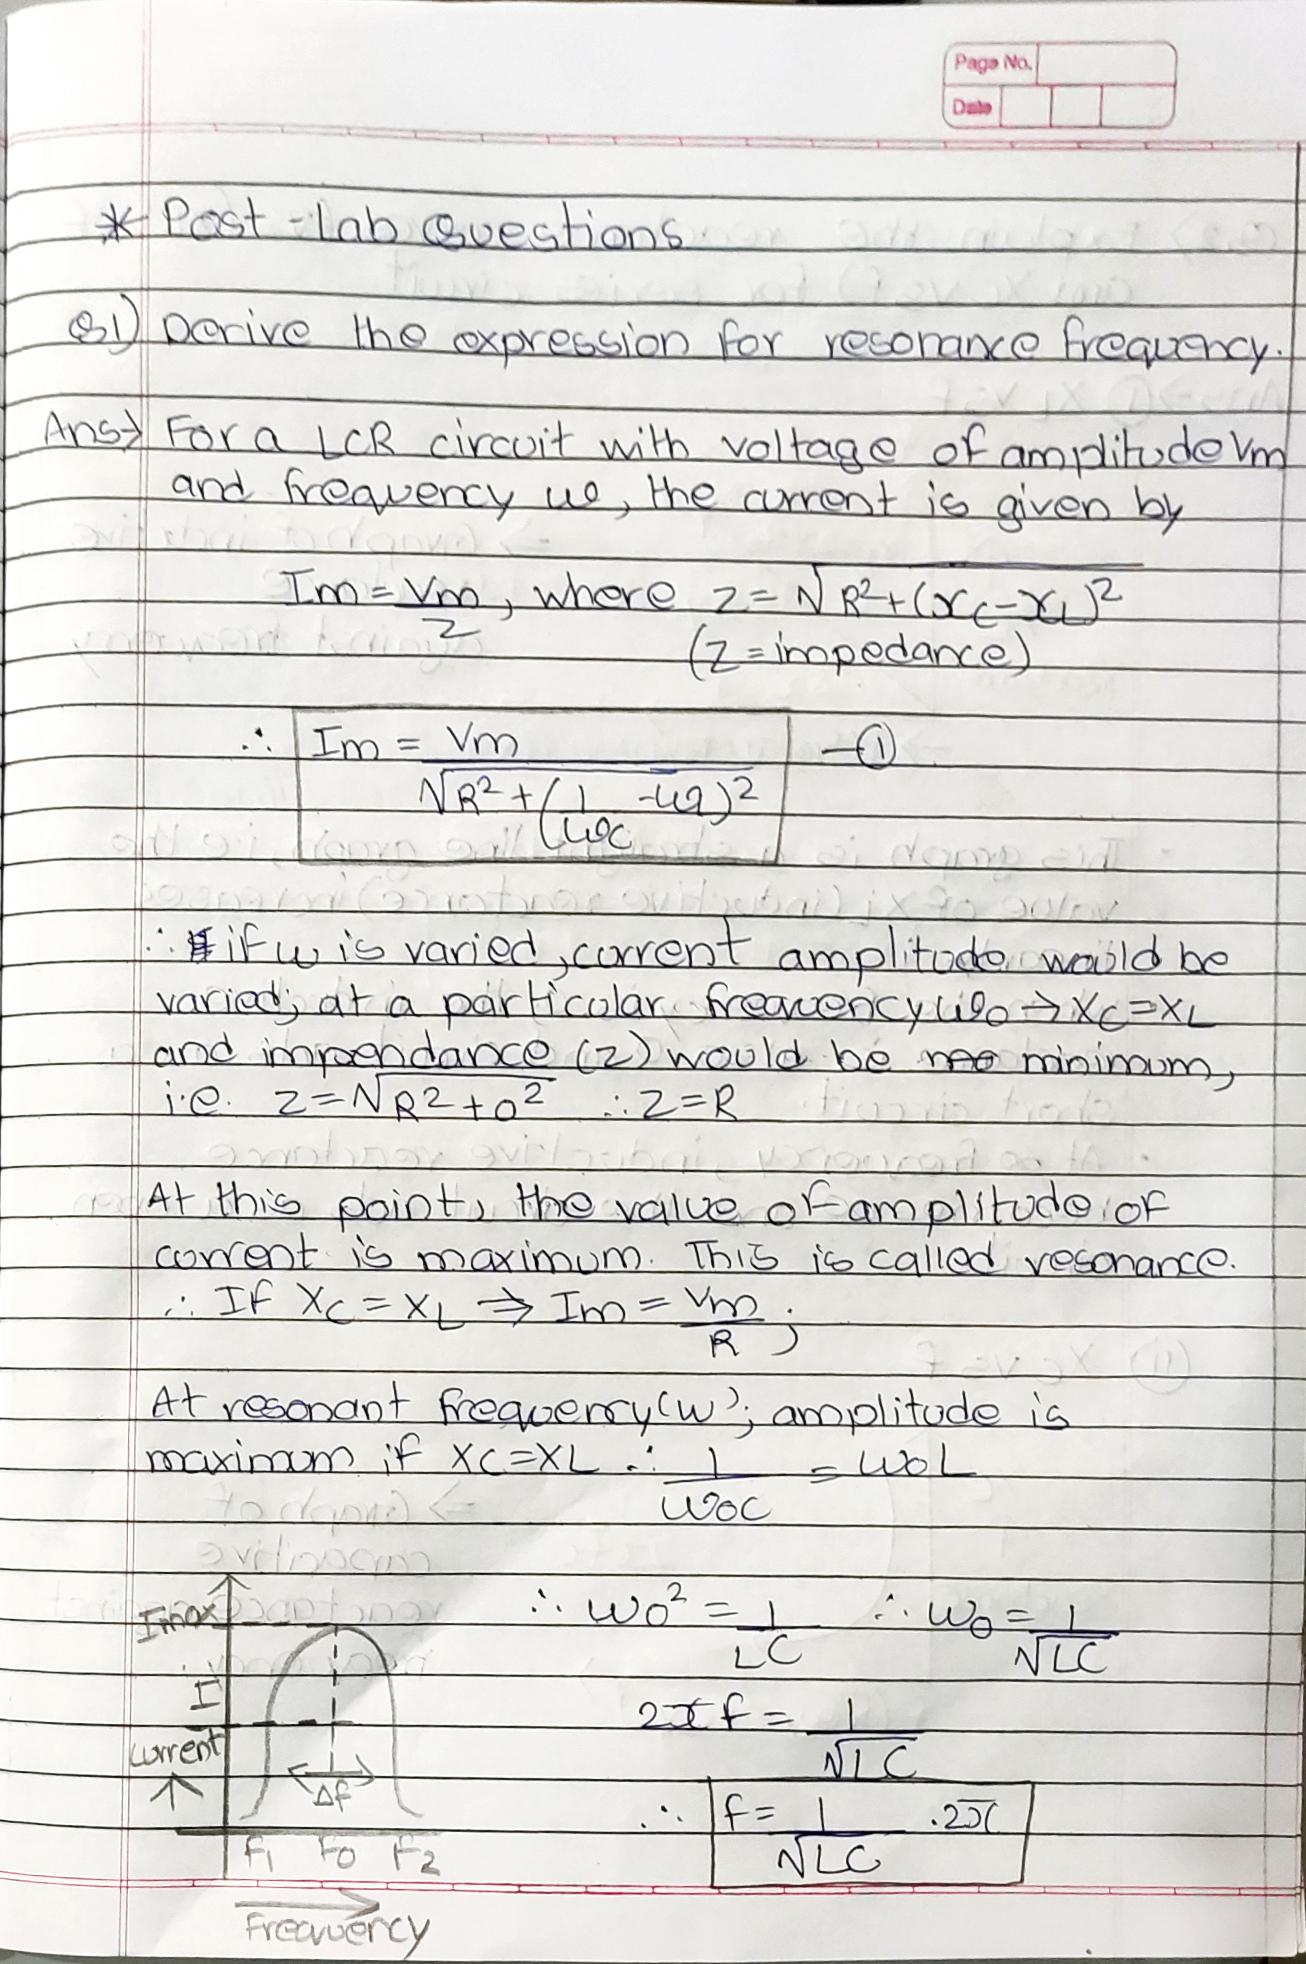 Page No.
Date
* Post-lab Questions
Q1) Derive the expression for resonance frequency.
Ans→ For a LCR circuit with voltage of amplitude Vm
and frequency ω, the current is given by
Im = Vm/Z, where Z = √R²+(XC-XL)²
(Z = impedance)
∴ Im = Vm/√R²+(1/ωC - ωL)² —①
∴ if ω is varied, current amplitude would be
varied; at a particular frequency ω0 → XC=XL
and impendance (Z) would be minimum,
i.e. Z = √R²+0² ∴ Z=R
At this point, the value of amplitude of
current is maximum. This is called resonance.
∴ If XC = XL ⇒ Im = Vm/R;
At resonant frequency (ω); amplitude is
maximum if XC=XL ∴ 1/ω0C = ω0L
∴ ω0² = 1/LC ∴ ω0 = 1/√LC
2πf = 1/√LC
∴ f = 1/√LC .2π
Imax
I
current
Δf
F1 F0 F2
Frequency